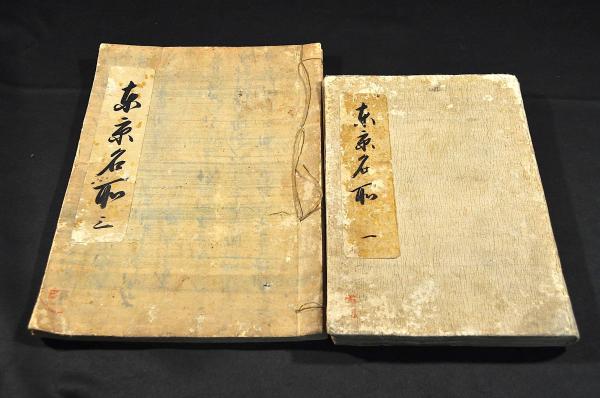 東京名所
三
東京名所
一